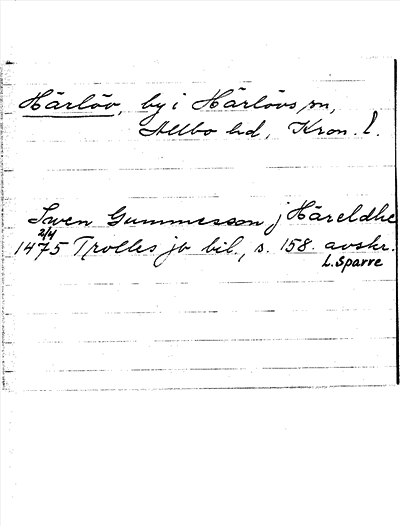 Härlöv, by i Härlövs sn,
Allbo hd, Kron. l.
Swen Gummesson j Häreldhe
2/4
1475 Trolles jo bil., s. 158. avskr.
L. Sparre